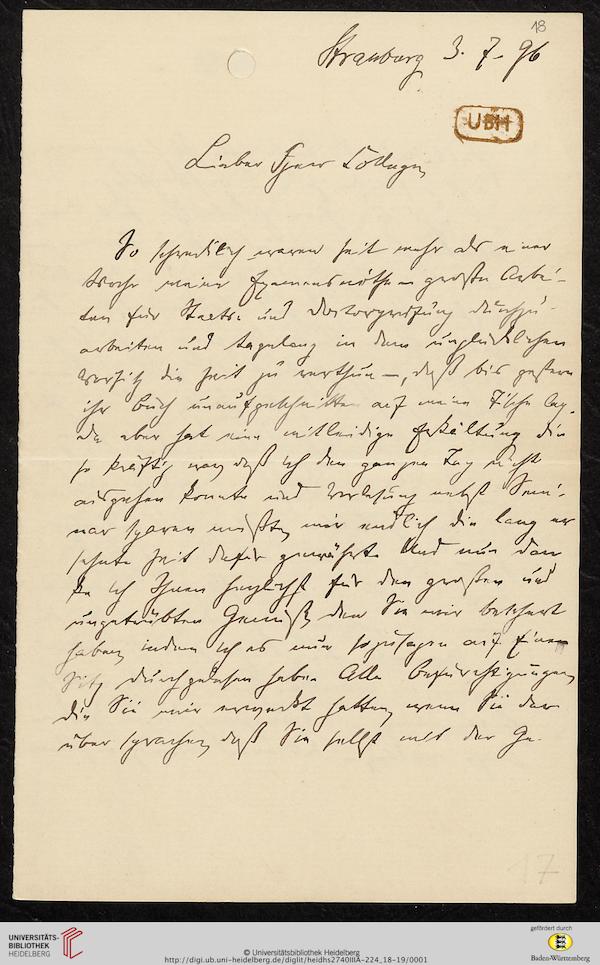 18
Strassburg 3. 7. 96
UBH
Lieber Herr College,
So schrecklich waren seit mehr als einer
Woche meine Examensnöthe – große Arbei-
ten für Staats- und Doctorprüfung durchzu-
arbeiten und tagelang in dem unglücklichen
Vorsitz die Zeit zu verthun –, daß bis gestern
ihr Buch unaufgeschnitten auf meinem Tische lag.
Da aber hat eine mitleidige Erkältung die
so kräftig war daß ich den ganzen Tag nicht
ausgehen konnte und Vorlesung nebst Semi-
nar sparen mußte, mir endlich die lang er
sehnte Zeit dafür gewährt. Und nun dan
ke ich Ihnen herzlichst für den großen und
ungetrübten Genuß, den Sie mir beschert
haben, indem ich es nun sozusagen auf Einen
Sitz durchgelesen habe. Alle Befürchtigungen,
die Sie mir erweckt hatten, wenn Sie dar
über sprachen, daß Sie selbst mit der Ge-
17
UNIVERSITÄTS-
BIBLIOTHEK
HEIDELBERG
© Universitätsbibliothek Heidelberg
http://digi.ub.uni-heidelberg.de/diglit/heidhs2740IIIA-224_18-19/0001
gefördert durch
Baden-Württemberg